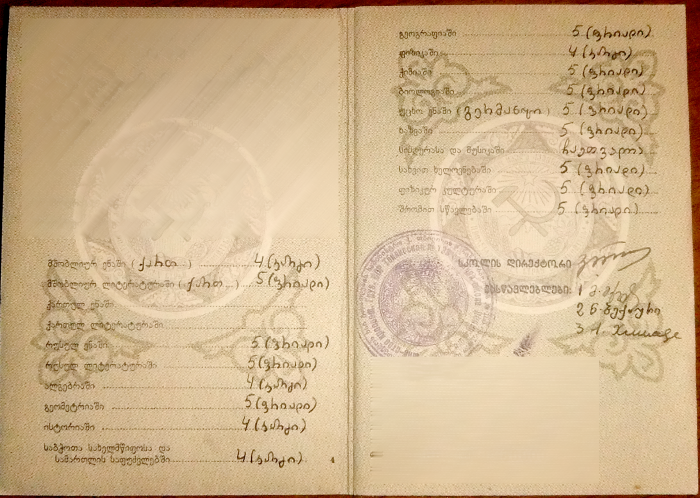 მშობლიურ ენაში (ქართ...) 4 (კარგი)
მშობლიურ ლიტერატურაში (ქართ...) 5 (ფრიადი)
ქართულ ენაში
ქართულ ლიტერატურაში
რუსულ ენაში 5 (ფრიადი)
რუსულ ლიტერატურაში 5 (ფრიადი)
ალგებრაში 4 (კარგი)
გეომეტრიაში 5 (ფრიადი)
ისტორიაში 4 (კარგი)
საბჭოთა სახელმწიფოსა და
სამართლის საფუძვლებში 4 (კარგი)
გეოგრაფიაში 5 (ფრიადი)
ფიზიკაში 4 (კარგი)
ქიმიაში 5 (ფრიადი)
ბიოლოგიაში 5 (ფრიადი)
უცხო ენაში (გერმანული) 5 (ფრიადი)
ხაზვაში 5 (ფრიადი)
სიმღერასა და მუსიკაში ჩაეთვალა
სახვით ხელოვნებაში 5 (ფრიადი)
ფიზიკურ კულტურაში 5 (ფრიადი)
შრომით სწავლებაში 5 (ფრიადი)
სკოლის დირექტორი
მასწავლებლები: 1
2
3